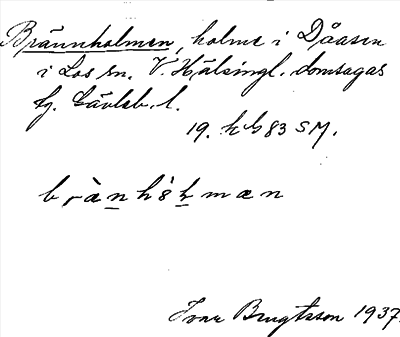 Brännholmen, holme i Dåasen
i Los sn. V. Hälsingl. domsagas
tg. Gävleb. l.
19. k b 83 SM.
brànhòļmæn
Ivar Bengtsson 1937.